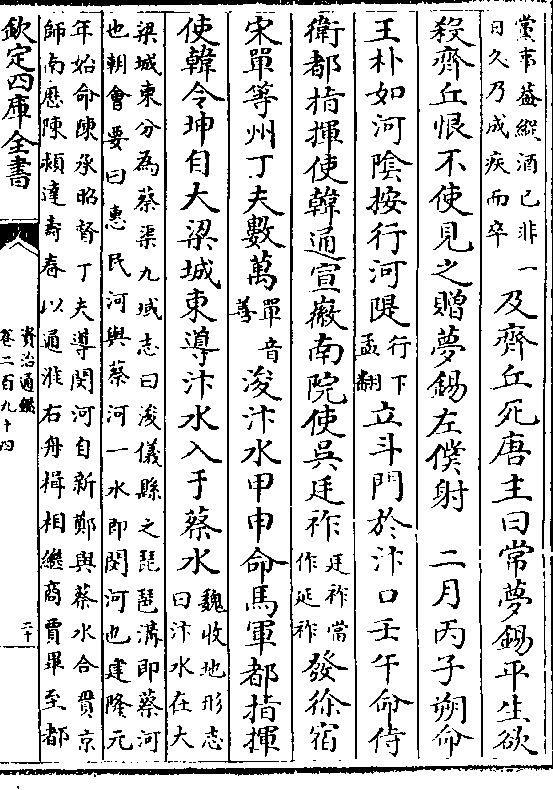 黨事益縱酒已非一
日久乃成疾而卒
及齊丘死唐主曰常夢錫平生欲
殺齊丘恨不使見之贈夢錫左僕射 二月丙子朔命
王朴如河陰按行河隄
行下
孟翻
立斗門於汴口壬午命侍
衛都指揮使韓通宣徽南院使吳廷祚
廷祚當
作延祚
發徐宿
宋單等州丁夫數萬
單音
善
浚汴水甲申命馬軍都指揮
使韓令坤自大梁城東導汴水入于蔡水
魏收地形志
曰汴水在大
梁城東分為蔡渠九域志曰浚儀縣之琵琶溝即蔡河
也朝會要曰惠民河與蔡河一水即閔河也建隆元
年始命陳承昭督丁夫導閔河自新鄭與蔡水合貫京
師南歷陳潁達壽春以通淮右舟楫相繼商賈畢至都
欽定四庫全書
資治通鑑
卷二百九十四
二十